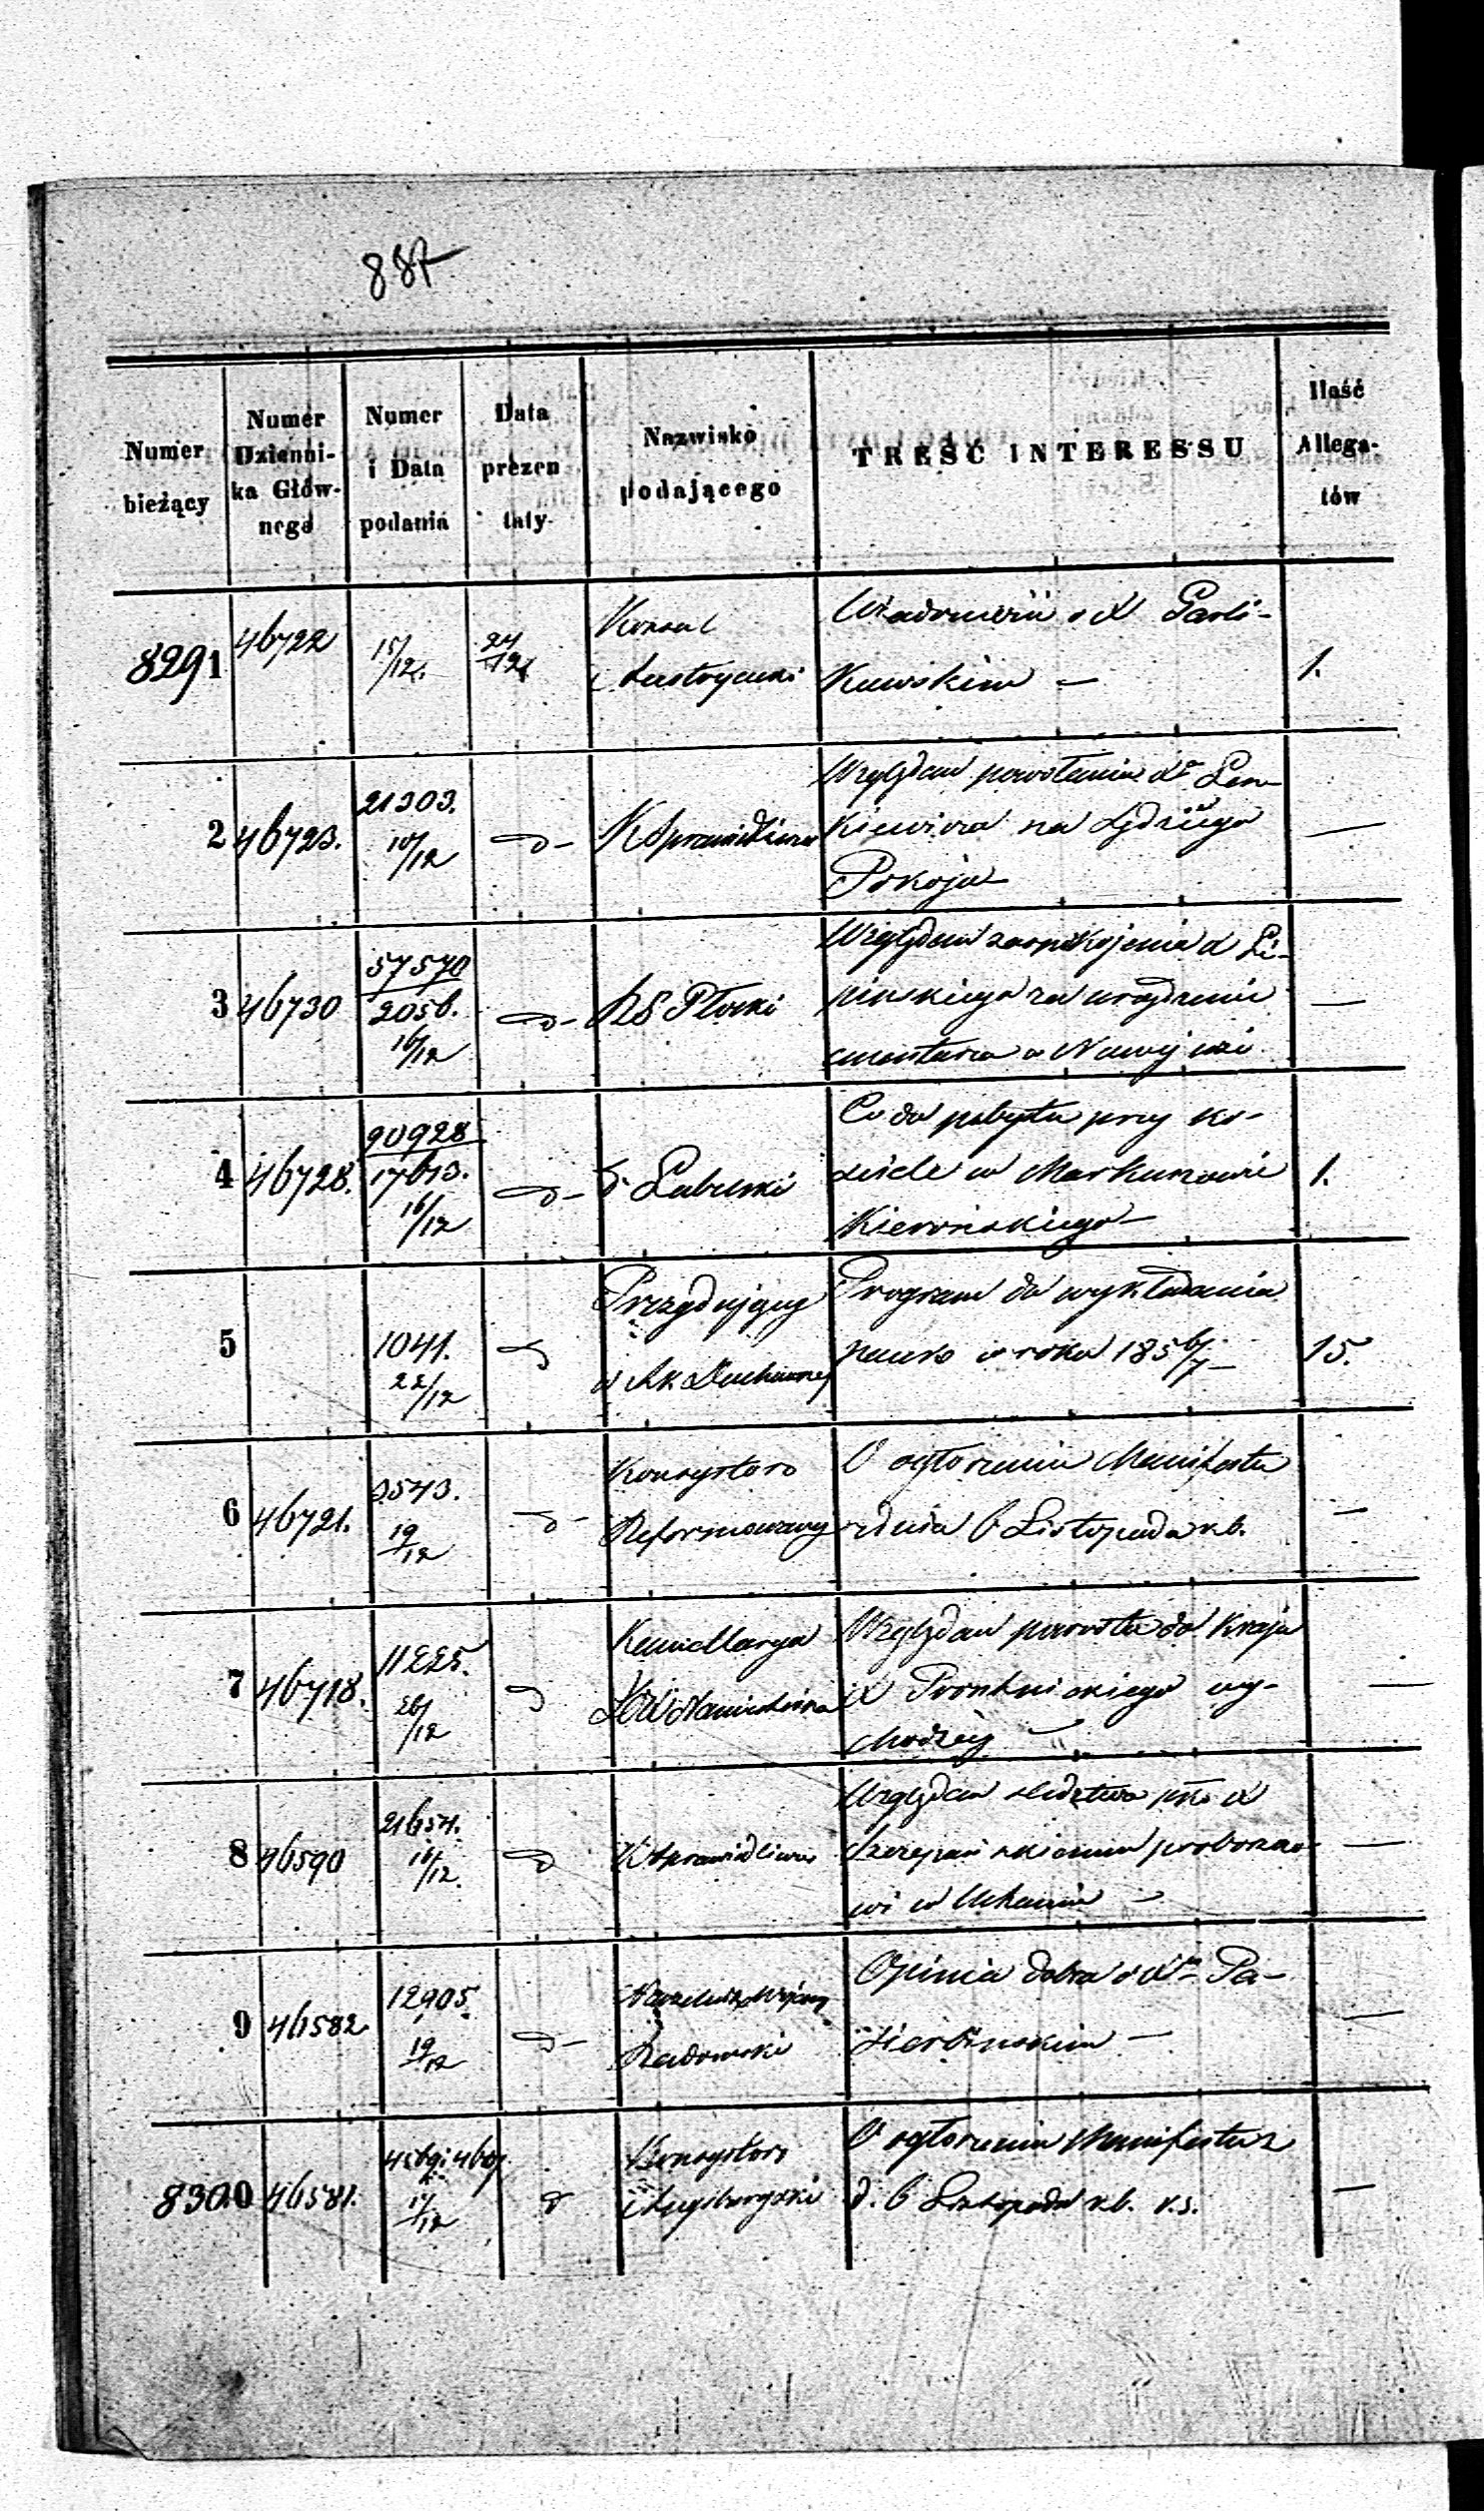 887
Numer bieżący
Numer Dzienni- ka Głów- nego
Numer i Data podania
Data prezen taty
Nazwisko podającego
TREŚĆ INTERESSU
Ilość Allega- tów
8291 46722 15/12. 24/12 Konsul Austryacki
Wiadomość o X
kowskim —
1.
2 46723. 21303. 10/12 — D — K Sprawiedliwa
Względem powołania Xa Len
kiewicza na Sędziego
Pokoju —
—
3 46730 57570 / 2056. 16/12 — D — RG Płocki
Względem zaspokojenia X Li-
pinskiego za urządzenie
cmentarza w Nowej wsi
—
4 46728. 90928 / 17613. 16/12 — D — D Lubelski
Co do pobytu przy ko-
ściele w Markuszowie
1.
5 1041. 22/12 Prezydujący w Ak Duchownej
Program do wykładania
nauk w roku 1856/7 —
15.
6 46721. 3543. 19/12 — D — Konsystorz Reformowany
O ogłoszeniu Manifestu
z dnia 6 Listopada r.b.
—
7 46718. 11225. 20/12 D Kancellarya JOX Namiestnika
Względem powrotu do Kraju
X wy-
chodźcy —
—
8 46590 21654. 16/12. D K Sprawiedliwa
Względem śledztwa pko X
Szczepańskiemu probosczo-
wi w Uchaniu —
—
9 46582 12905. 19/12 D — Naczelnik Wojenny Radomski
Opinia dobra o Xu Pa-
—
—
8300 46581. 17/12 D Konsystorz Augsburgski
O ogłoszeniu Manifestu z
d. 6 Listopada r.b. v.s.
—